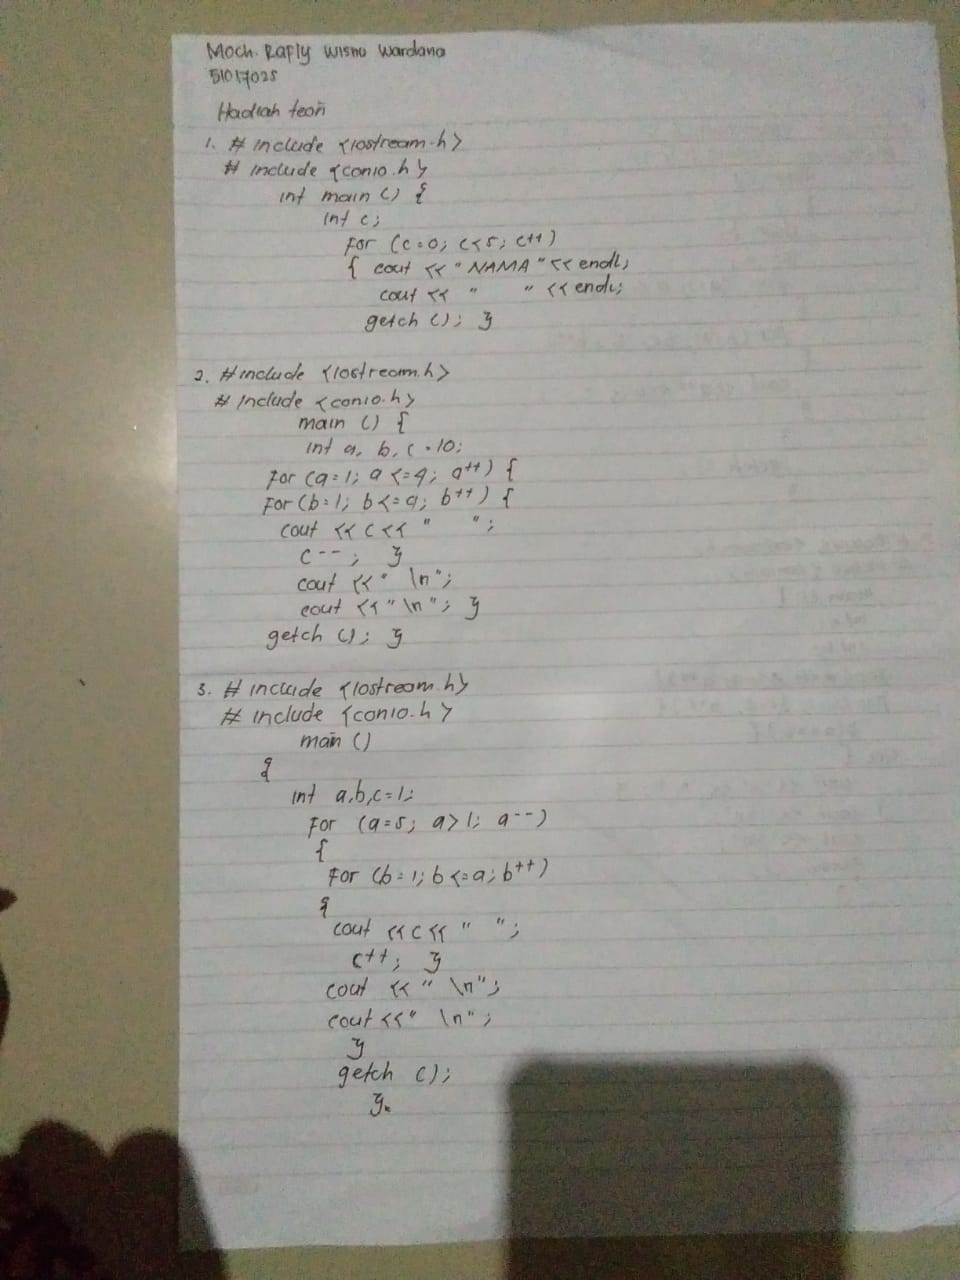 Moch. Rafly Wisnu Wardana
51017025
Hadiah teori
1. # include <iostream.h>
# include <conio.h>
int main () {
int c;
for (c=0; c<5; c++)
{ cout << " NAMA " << endl;
cout << "     " << endl;
getch (); }
2. # include <iostream.h>
# include <conio.h>
main () {
int a, b, c = 10;
for (a=1; a <=4; a++) {
for (b=1; b<=a; b++) {
cout << c << "     ";
c--; }
cout << " \n";
cout << "\n"; }
getch (); }
3. # include <iostream.h>
# include <conio.h>
main ()
{
int a,b,c=1;
for (a=5; a>1; a--)
{
for (b=1; b<=a; b++)
{
cout << c << "   ";
c++; }
cout << " \n";
cout << " \n";
}
getch ();
}.